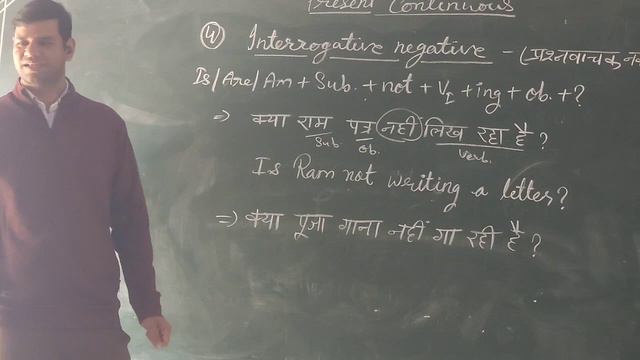 Present Continuous
④ Interrogative negative - (प्रश्नवाचक
Is/Are/Am + Sub. + not + V₁ + ing + ob. + ?
⇒ क्या राम पत्र नहीं लिख रहा है ?
Sub ob. Verb.
Is Ram not writing a letter?
⇒ क्या पूजा गाना नहीं गा रही है ?